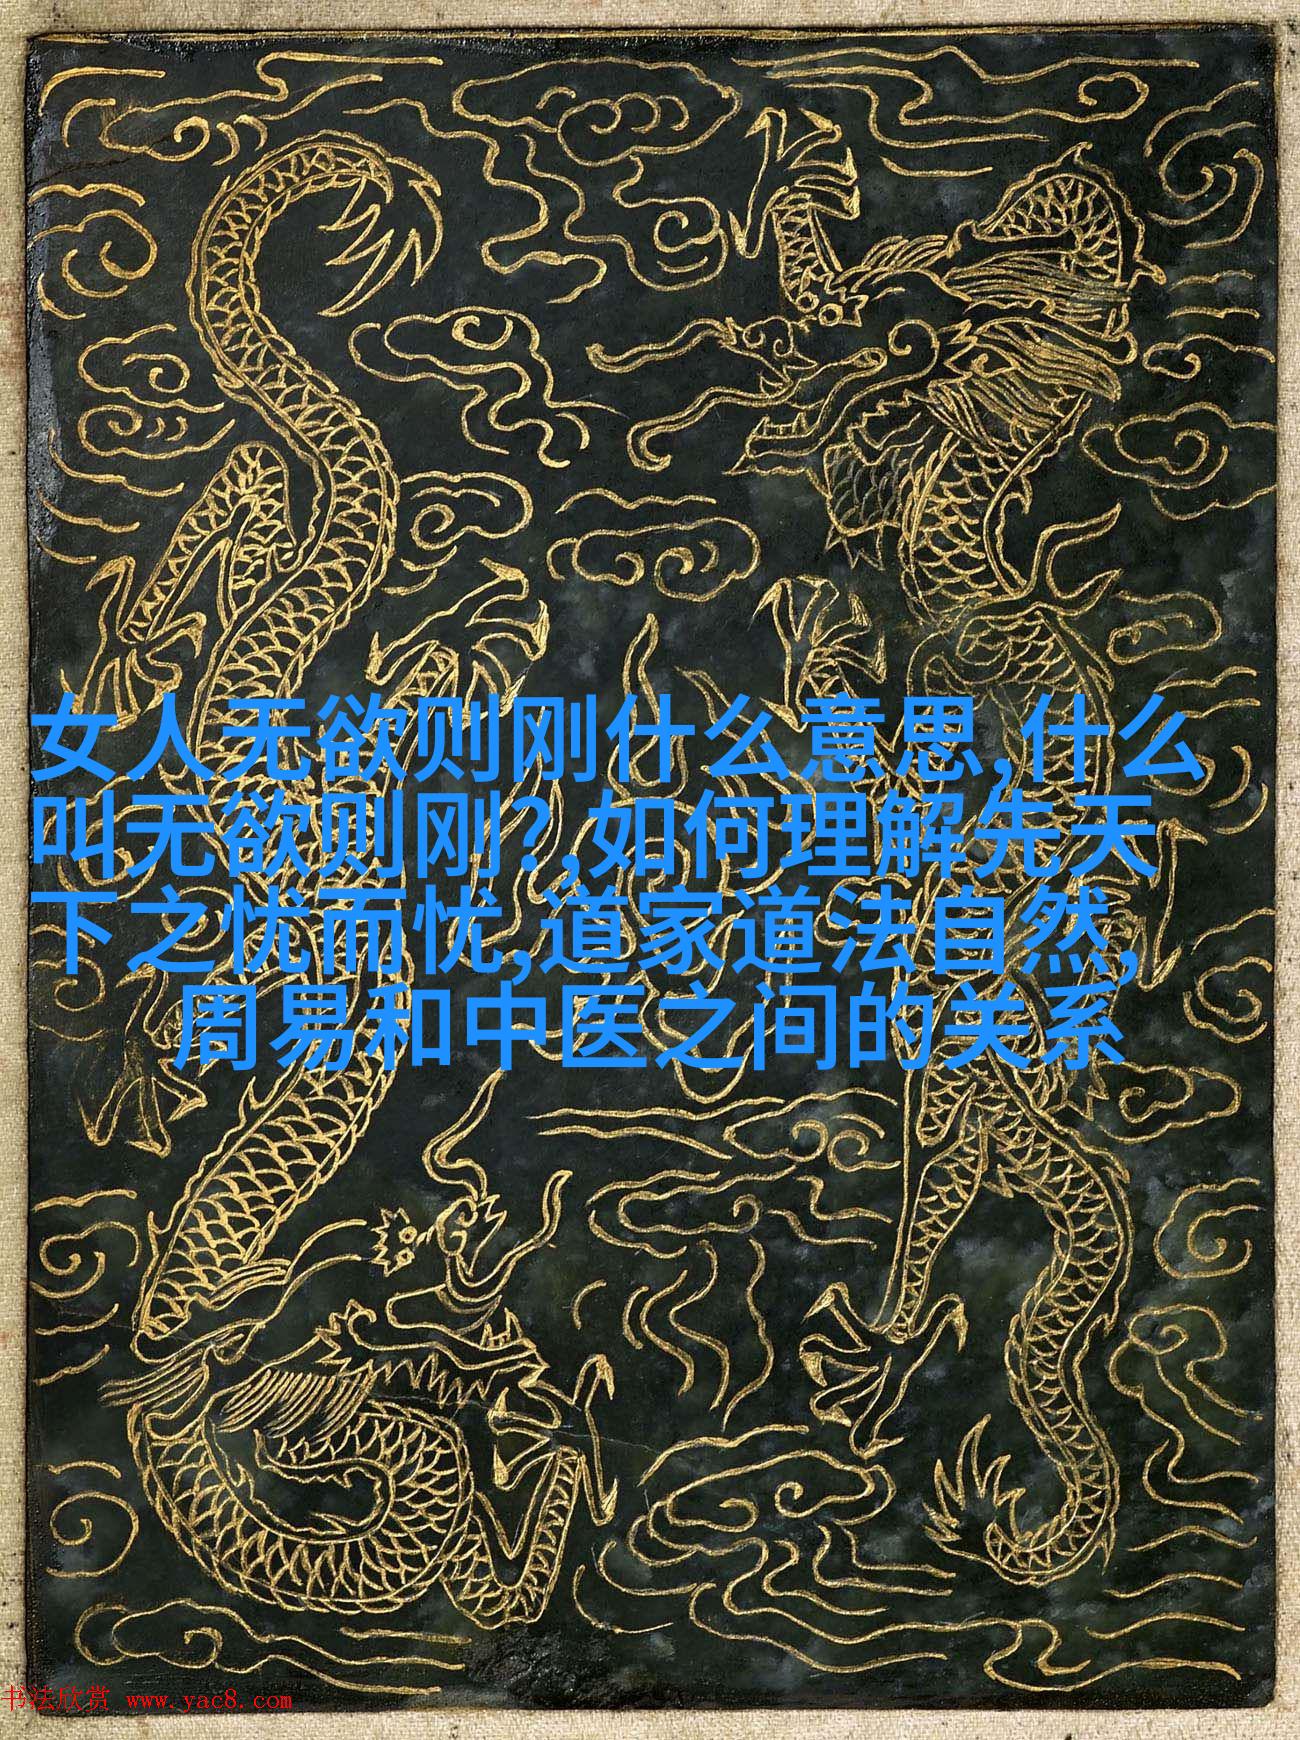 女人无欲则刚什么意思,什么
叫无欲则刚?,如何理解先天
下之忧而忧,道家道法自然,
周易和中医之间的关系
书法欣赏 www.yac8.com